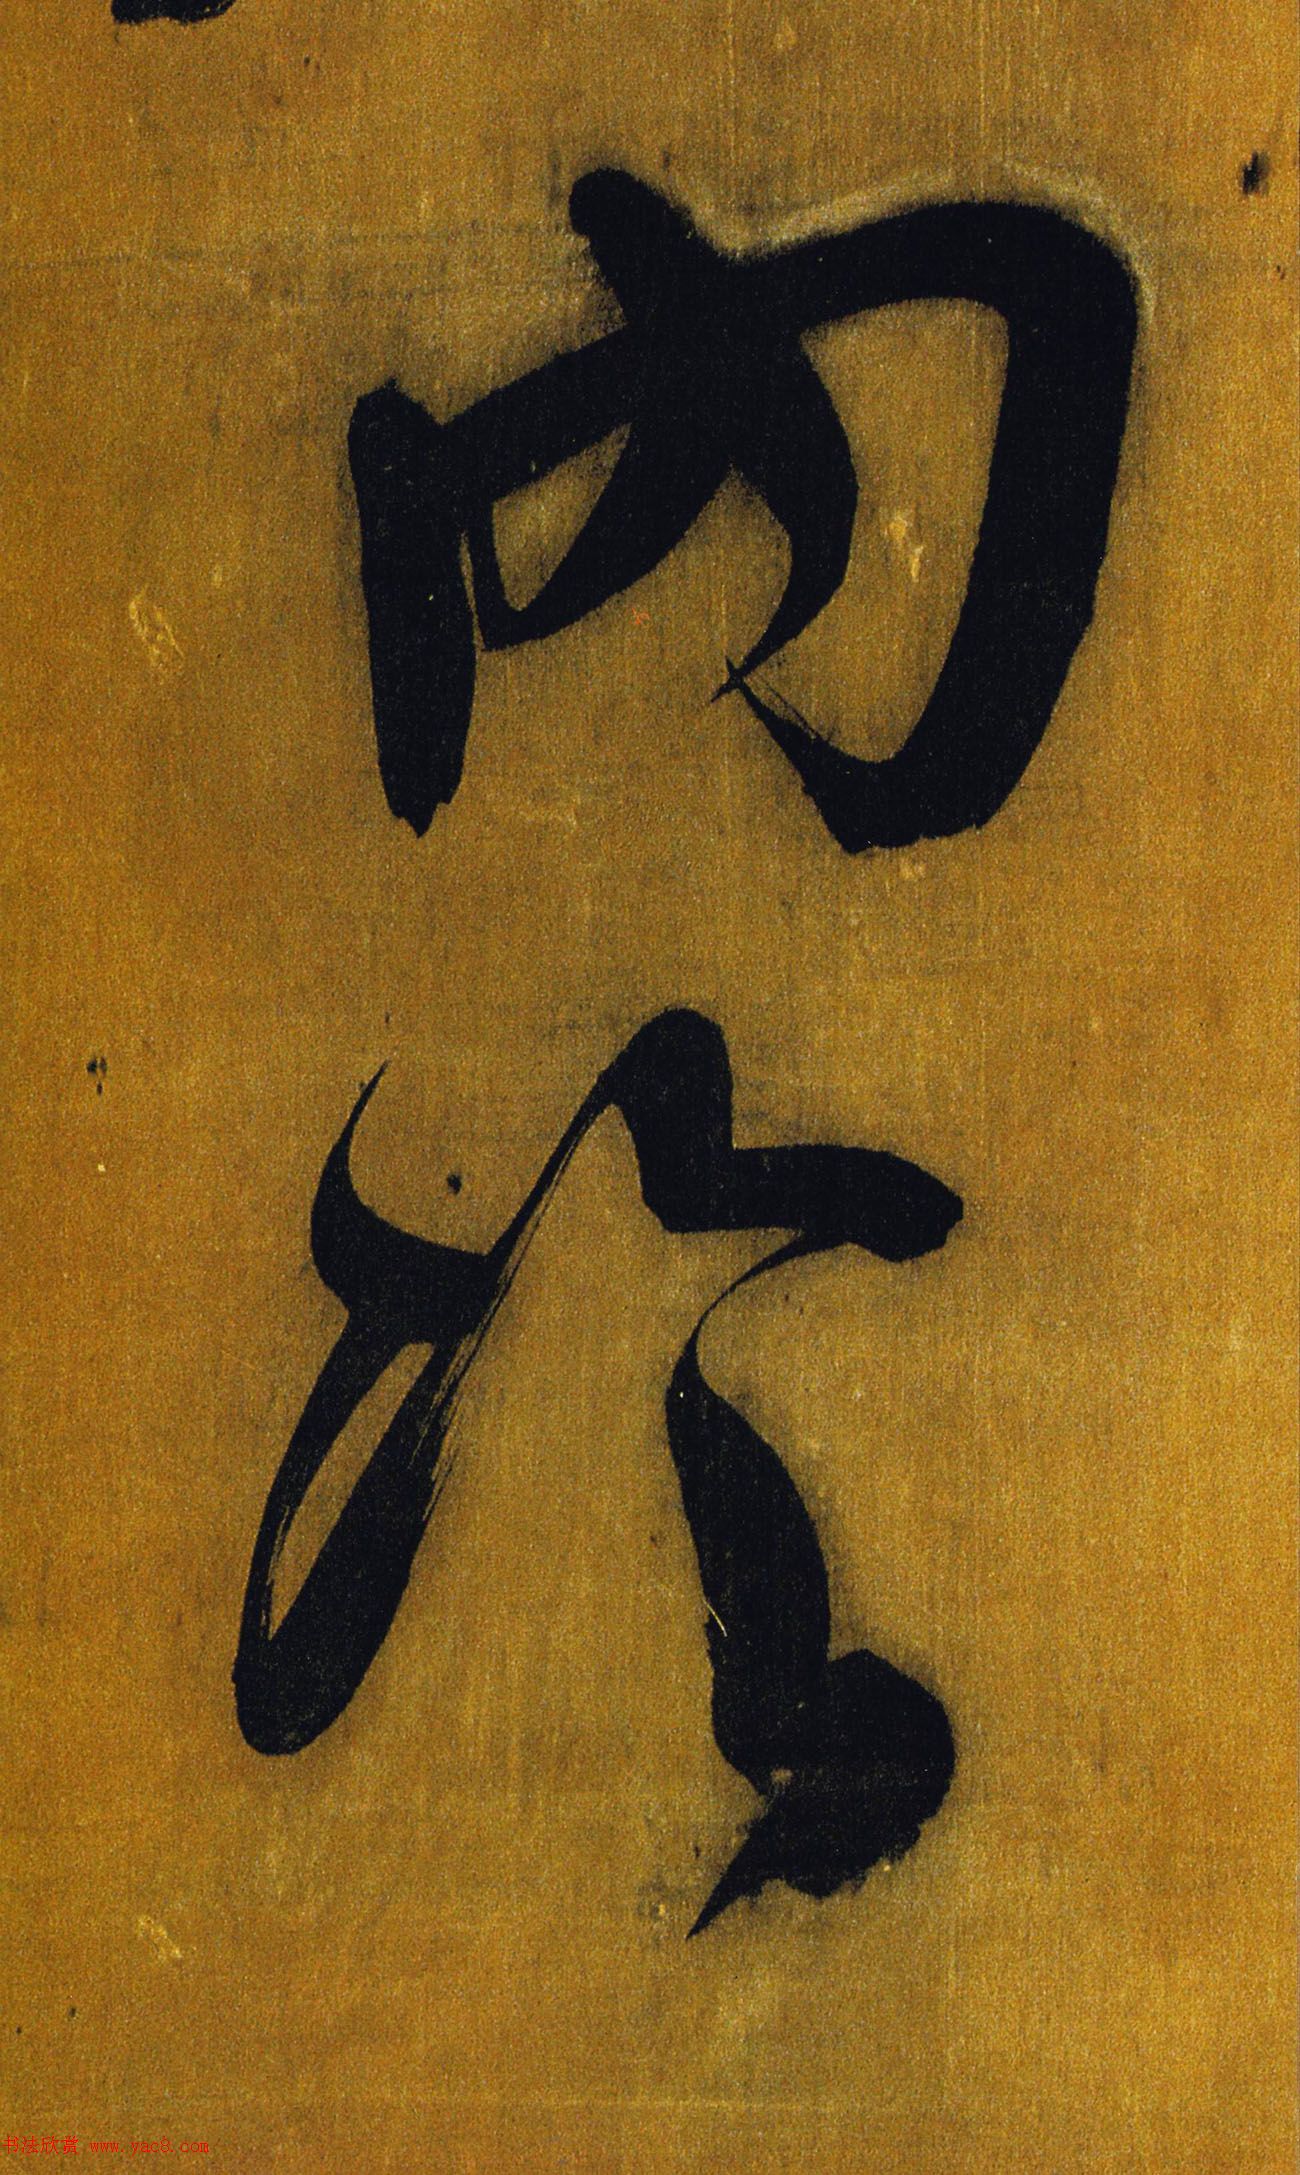 内於
书法欣赏 www.yac8.com